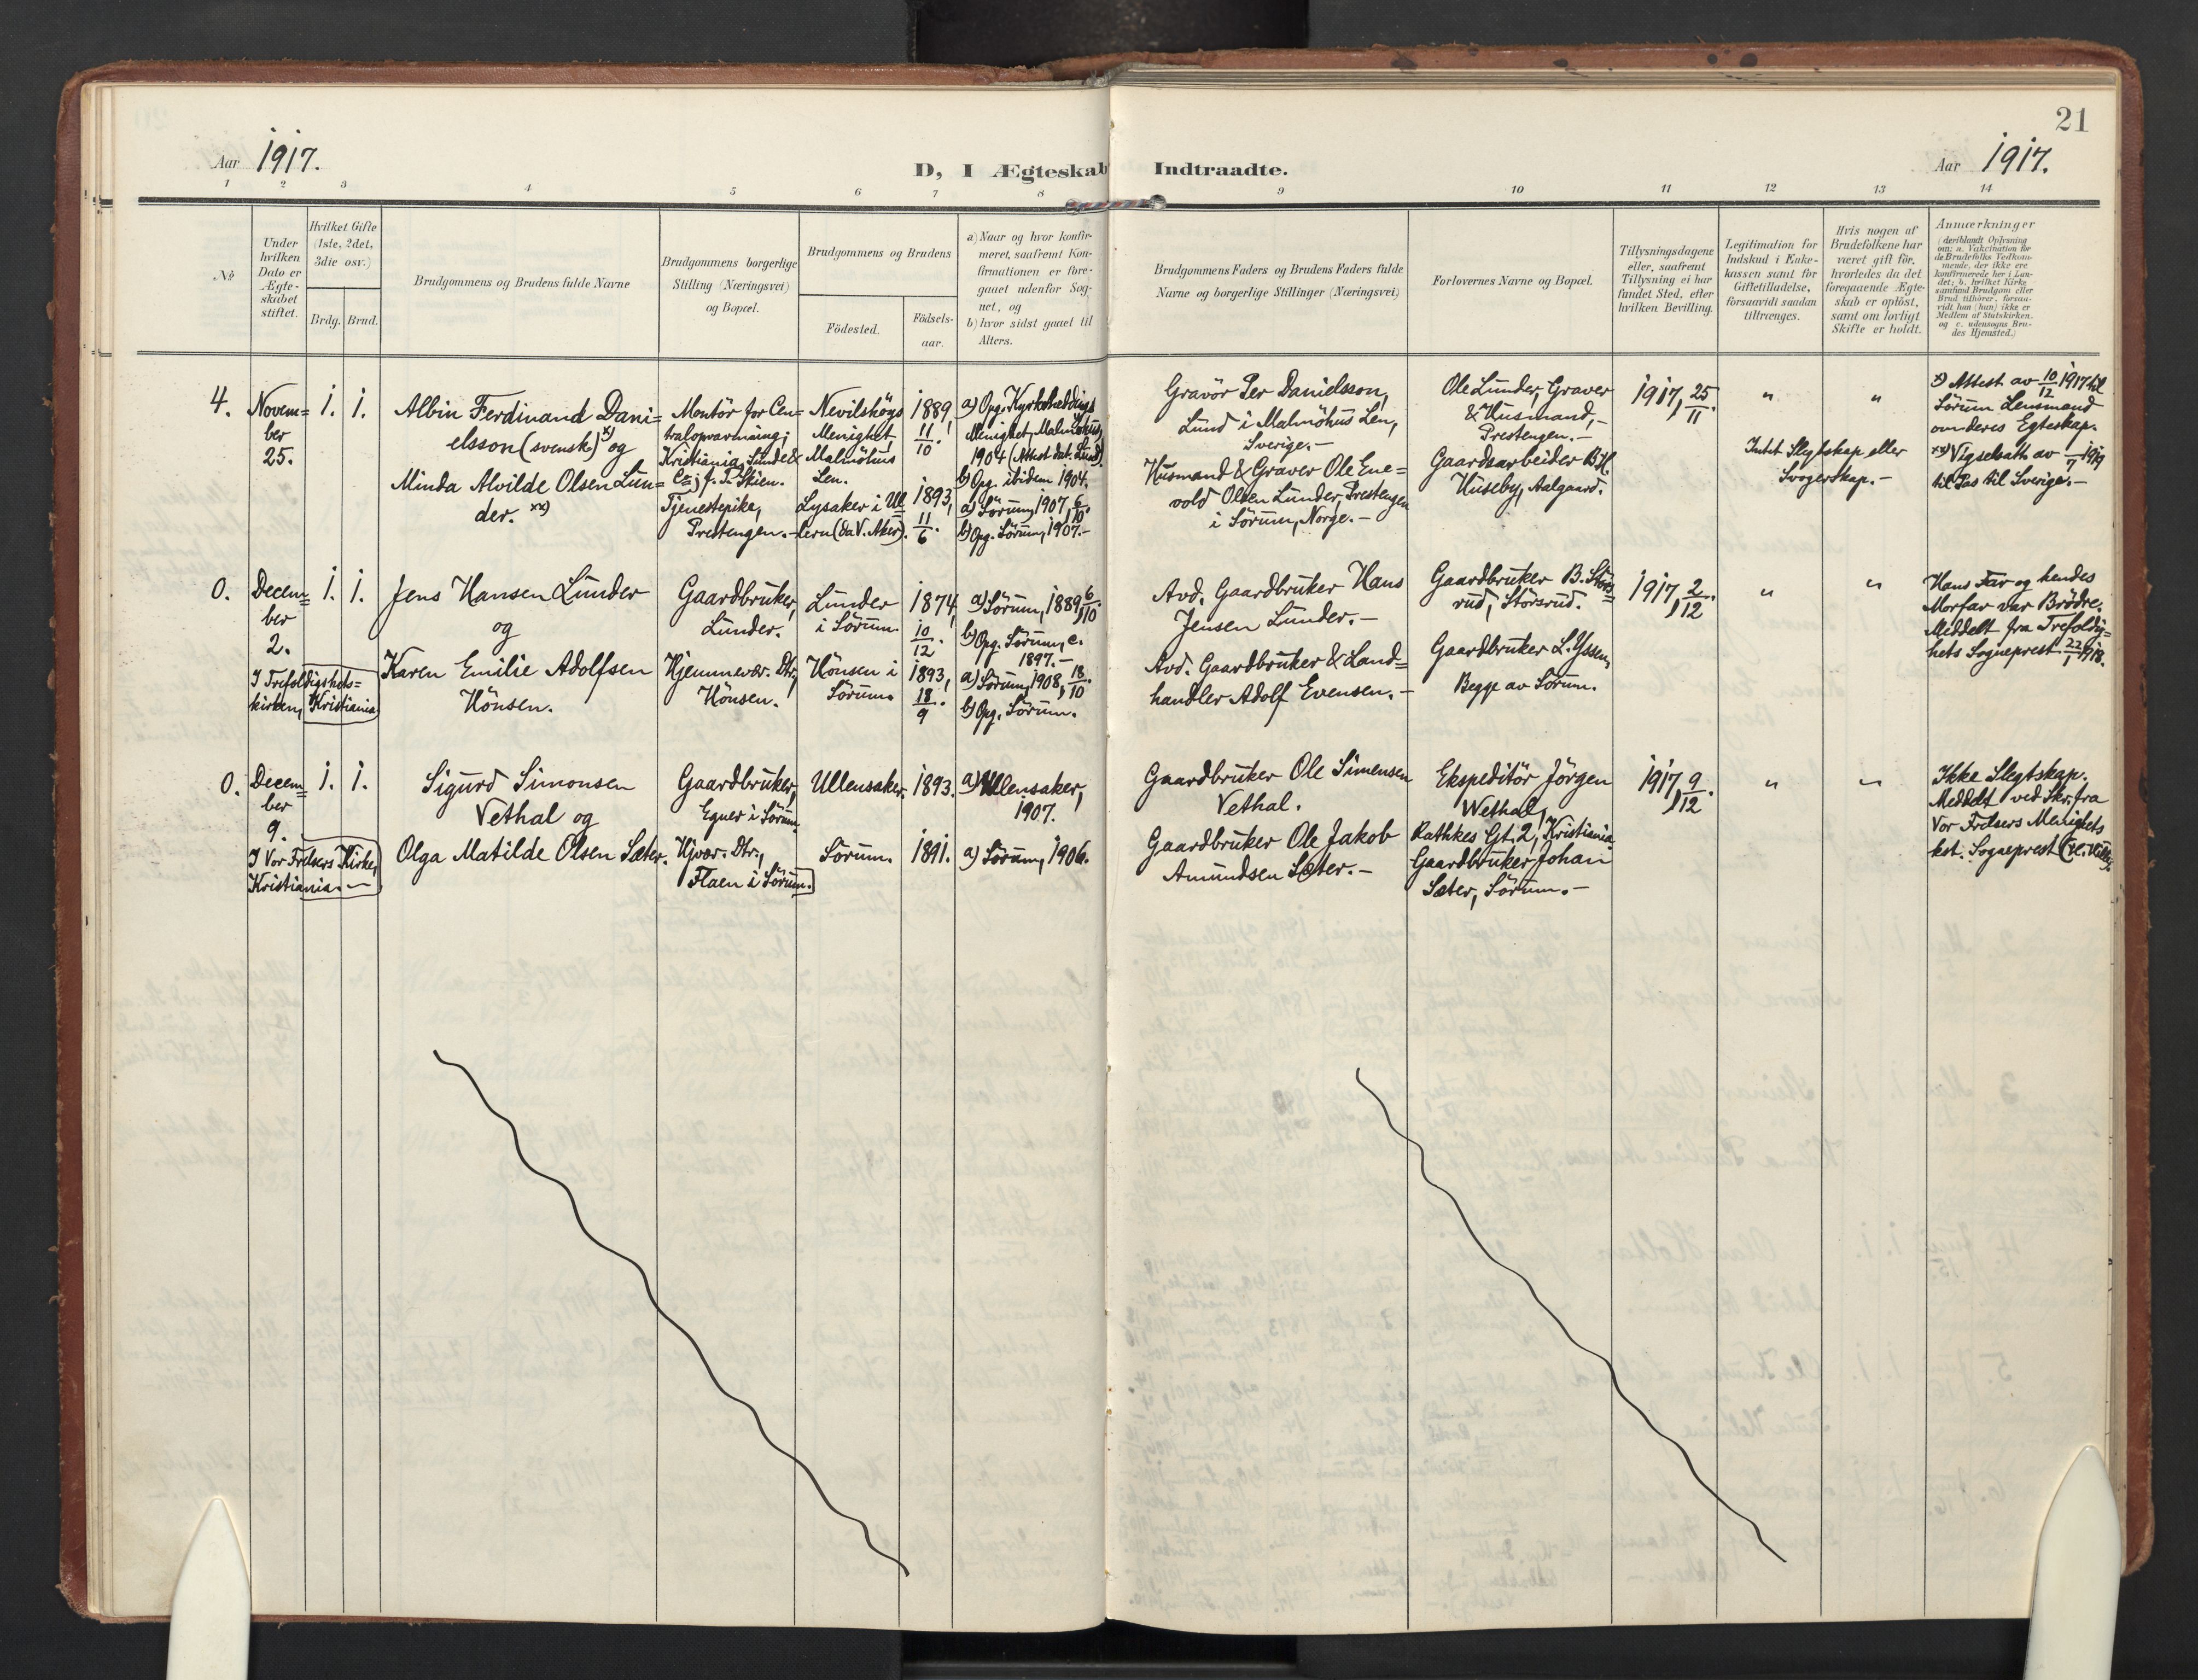 21
Aar 1917.
Aar 1917.
D, I Ægteskab Indtraadte.
1 2 3 4 5 6 7 8 9 10 11 12 13 14
No
Under
hvilken
Dato er
Ægte-
skabet
stiftet.
Hvilket Gifte
(1ste, 2det,
3die osv.)
Brdg. Brud.
Brudgommens og Brudens fulde Navne
Brudgommens borgerlige
Stilling (Næringsvei)
og Bopæl.
Brudgommens og Brudens
Födested.
Födsels-
aar.
a) Naar og hvor konfir-
meret, saafremt Kon-
firmationen er fore-
gaaet udenfor Sog-
net, og
b) hvor sidst gaaet til
Alters.
Brudgommens Faders og Brudens Faders fulde
Navne og borgerlige Stillinger (Næringsvei)
Forlovernes Navne og Bopæl.
Tillysningsdagene
eller, saafremt
Tillysning ei har
fundet Sted, efter
hvilken Bevilling.
Legitimation for
Indskud i Enke-
kassen samt for
Giftetilladelse,
forsaavidt saadan
tiltrænges.
Hvis nogen af
Brudefolkene har
været gift för,
hvorledes da det
foregaaende Ægte-
skab er oplöst,
samt om lovligt
Skifte er holdt.
Anmærkninger
(deriblandt Oplysning
om: a. Vakcination for
de Brudefolks Vedkom-
mende, der ikke ere
konfirmerede her i Lan-
det; b. hvilket Kirke-
samfund Brudgom eller
Brud tilhörer, forsaa-
vidt han (hun) ikke er
Medlem af Statskirken.
og c. udensogns Bru-
des Hjemsted.)
4.
Novem=
ber
25.
1. 1.
Albin Ferdinand Dani=
elsson (svensk) x) og
Minda Alvilde Olsen Lun=
der. xx)
Montör for Cen=
tralopvarmning;
Kristiania, Sunde &
Co; f. T. Skien.
Tjenestepike,
Prestengen.
Nevilshögs
Menighet,
Malmöhus
Len.
Lysaker i Ul=
lern (da V. Aker).
1889,
11/10
1893,
11/6
a) Opg. Kyrkoheddinge
Menighet, Malmöhus,
1904 (Attest dat. Lund)
b) Opg. ibidem 1904.
a) Sörum, 1907, 6/10.
b) Opg. Sörum, 1907.-
Gravör Per Danielsson,
Lund i Malmöhus Len,
Sverige.-
Husmand & Graver Ole Ene=
vold Olsen Lunder, Prestengen
i Sörum, Norge.-
Ole Lunder, Graver
& Husmand,-
Prestengen.-
Gaardsarbeider B. H.
Huseby, Aalgaard.
1917, 25/11.
" "
Intet Slegtskap eller
Svogerskap.-
x) Attest av 10/12 1917 til
Sörum Lensmand
om deres Egteskap.
xx) Vigselsatt. av /7 1919
til Pas til Sverige.-
0.
Decem=
ber
2.
I Trefoldigshets=
kirken, Kristiania
1. 1.
Jens Hansen Lunder
og
Karen Emilie Adolfsen
Hönsen.
Gaardbruker,
Lunder.
Hjemmevær. Dtr.,
Hönsen.
Lunder
i Sörum.
Hönsen i
Sörum.
1874,
10/12.
1893,
18/9.
a) Sörum, 1889, 6/10.
b) Opg. Sörum, c.
1897.-
a) Sörum, 1908, 18/10.
b) Opg. Sörum.
Avd. Gaardbruker Hans
Jensen Lunder.-
Avd. Gaardbruker & Land=
handler Adolf Evensen.-
Gaardbruker B. Störs=
rud, Störsrud.
Gaardbruker L. Yssen,
Begge av Sörum.
1917, 2/12.
" "
Hans Far og hendes
Morfar var Brödre.
Meddelt fra Trefoldig=
hets Sogneprest 22/1 1918.
0.
Decem=
ber
9.
I Vor Frelsers Kirke,
Kristiania.-
1. 1.
Sigurd Simonsen
Vethal og
Olga Matilde Olsen Sæter.
Gaardbruker,
Egner i Sörum.
Hjvær. Dtr.,
Flaen i Sörum.
Ullensaker.
Sörum.
1893.
1891.
a) Ullensaker,
1907.
a) Sörum, 1906.
Gaardbruker Ole Simensen
Vethal.
Gaardbruker Ole Jakob
Amundsen Sæter.-
Ekspeditör Jörgen
Wethal,
Rathkes Gt. 2, Kristiania
Gaardbruker Johan
Sæter, Sörum.-
1917, 9/12.
" "
Ikke Slegtskap.
Meddelt ved Skr. fra
Vor Frelsers Menighets
kst. Sogneprest